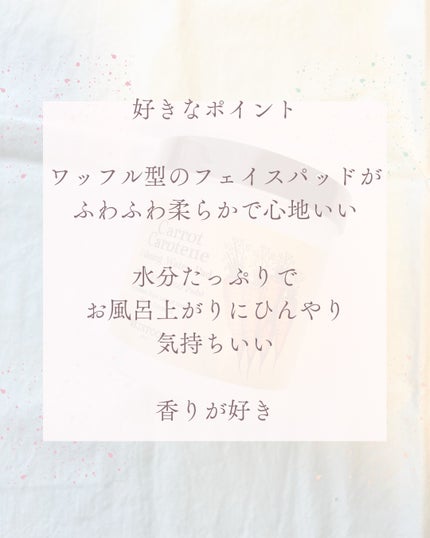 好きなポイント
ワッフル型のフェイスパッドが
ふわふわ柔らかで心地いい
水分たっぷりで
お風呂上がりにひんやり
気持ちいい
香りが好き
Carrot
Carotene